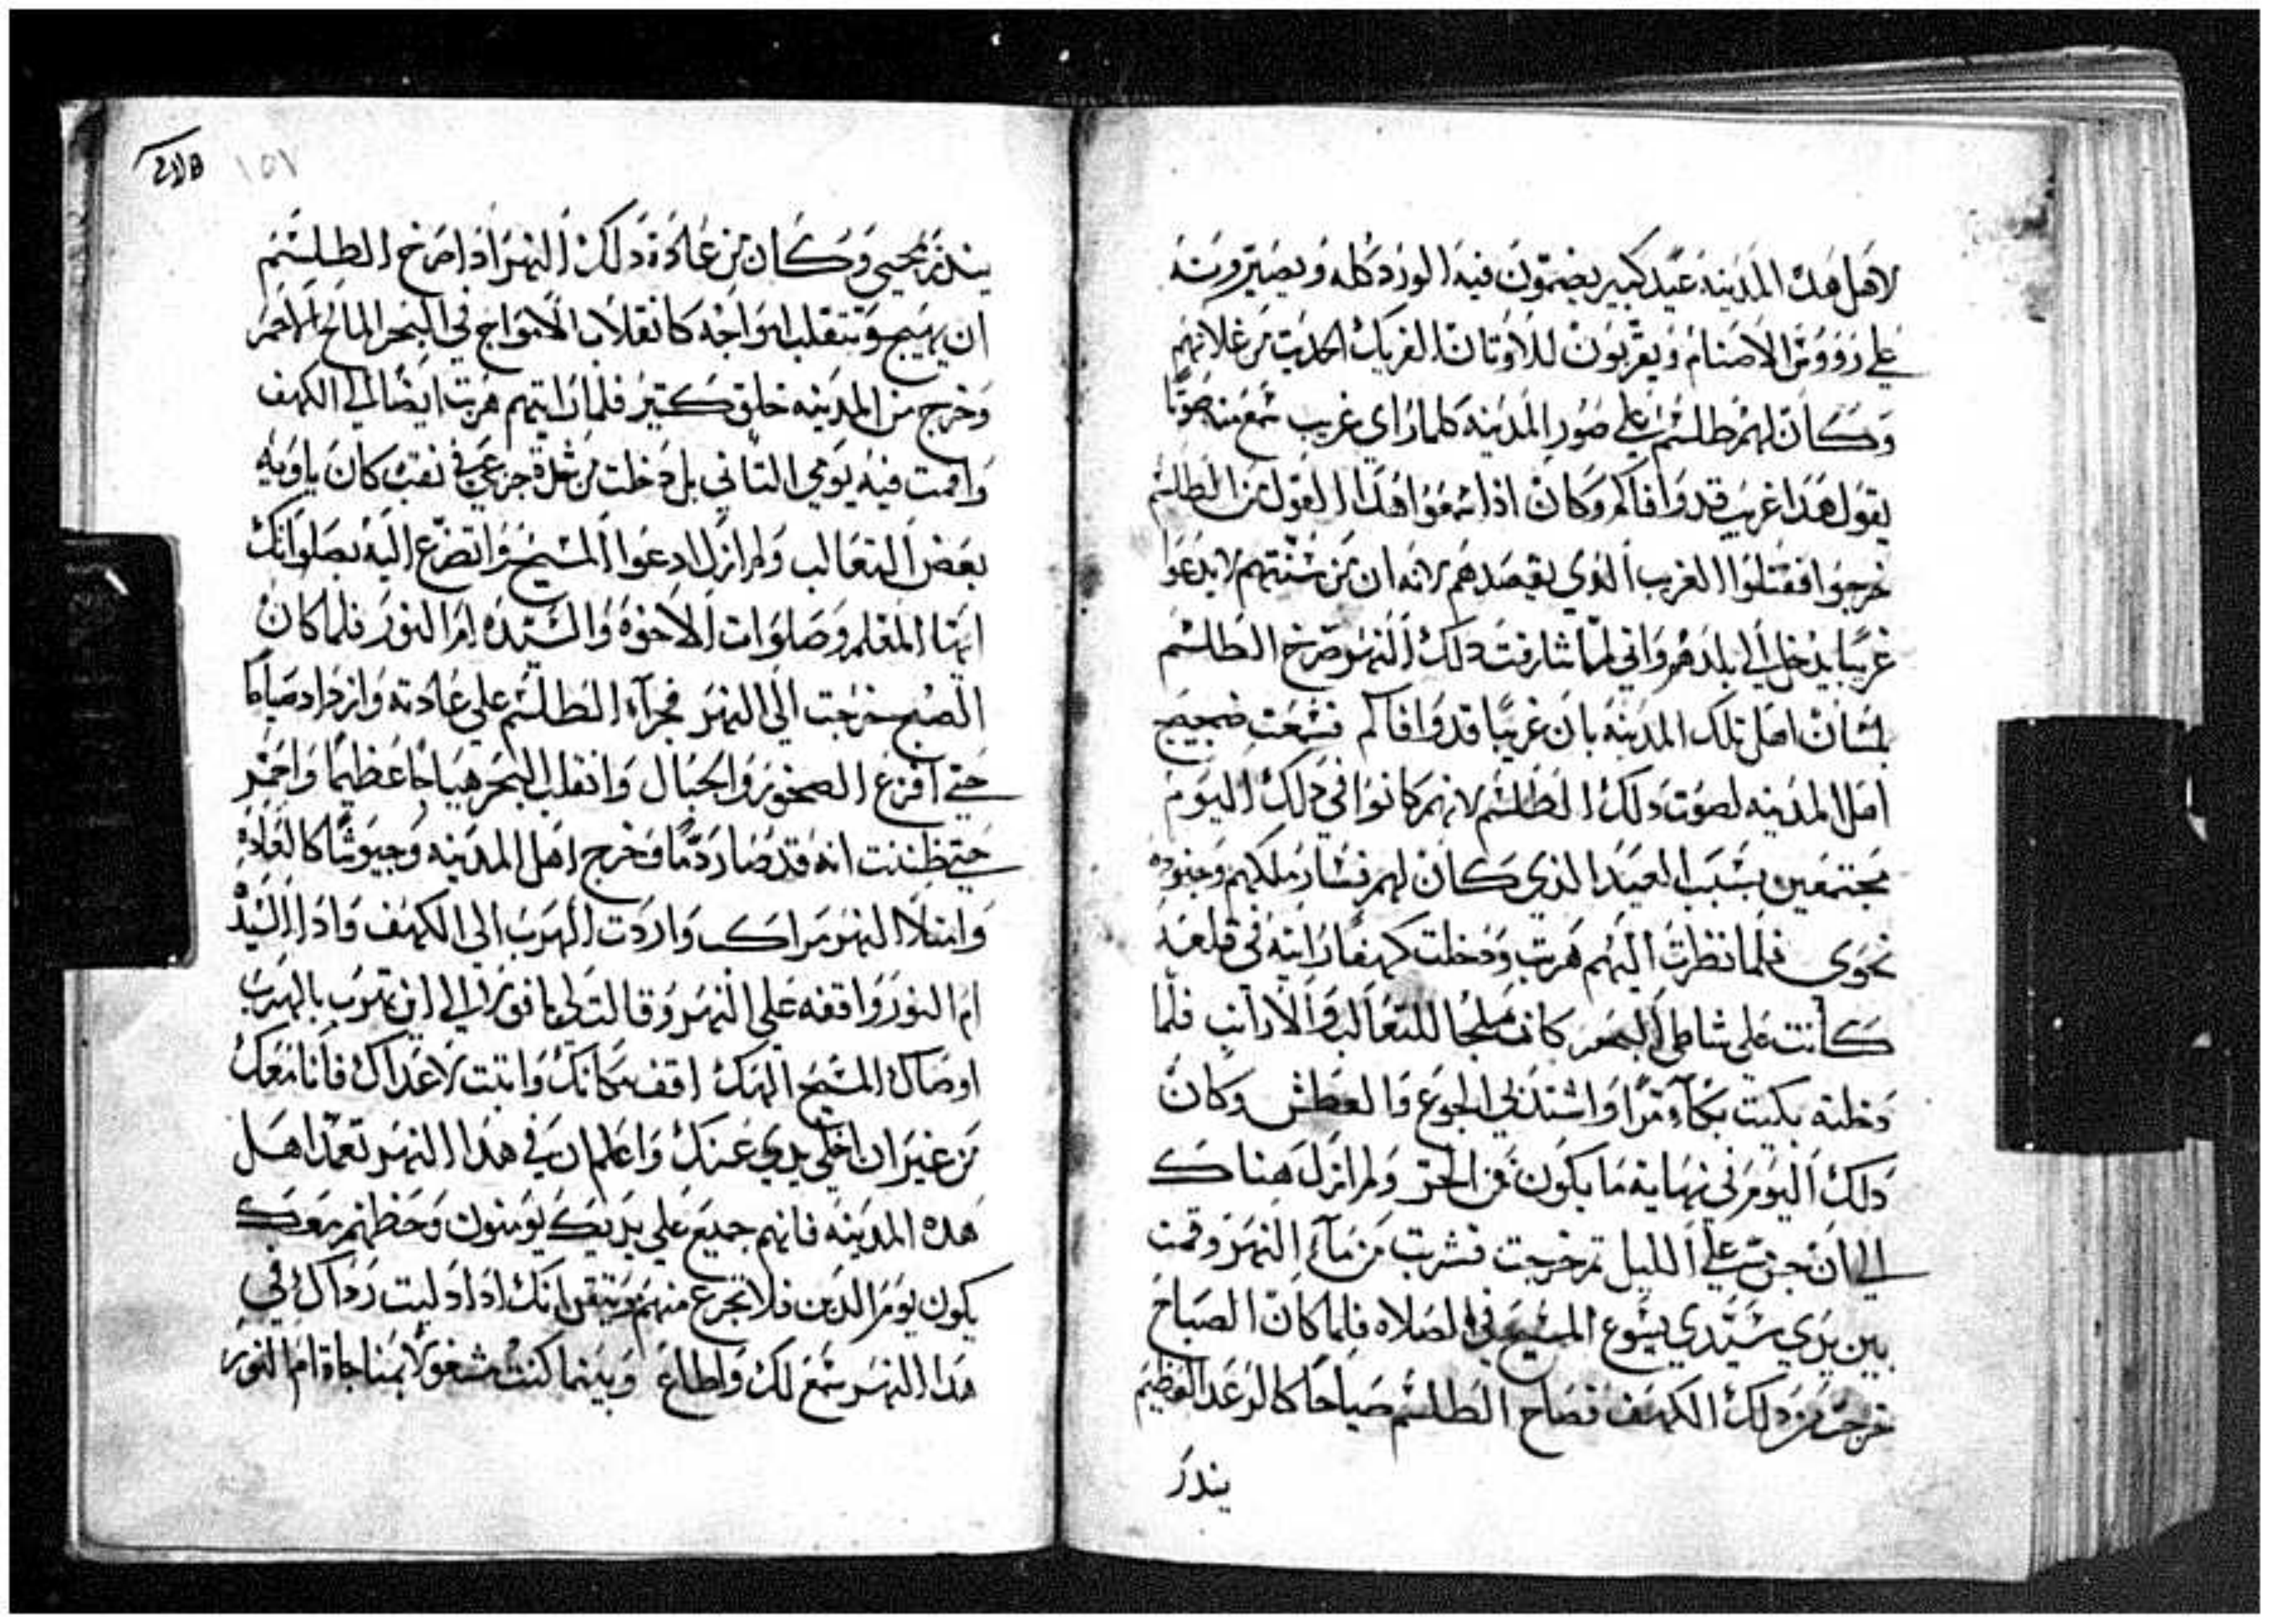 لاهل هده المدينه عيد كبير يضمون فيه الورد كله ويصيرونه
علي رووس الاصنام ويقربون للاوتان الفريك الحديت من غلاتهم
وكان لهم طلسم علي صور المدينه كلما راي غريب سمع منه صوتا
يقول هدا غريب قد وافاكم وكان ادا سمعوا هدا القول من الطلسم
خرجوا فقتلوا الغريب الدي يقصدهم لانه ان من سنتهم لا يدعوا
غريبا يدخل الي بلدهم واني لما شارفت دلك النهر صرخ الطلسم
بلسان اهل تلك المدينه بان غريبا قد وافاكم فسمعت ضجيج
اهل المدينه لصوت دلك الطلسم لانهم كانوا في دلك اليوم
مجتمعين بسبب العيد الدي كان لهم فسار ملكهم وجنوده
نحوي فلما نظرت اليهم هربت ودخلت كهفا رايته في قلعه
كانت علي شاطي البحر كانت ملجا للتعالب والارانب فلما
دخلته بكيت بكآء مرا واشتد بي الجوع والعطش وكان
دلك اليوم في نهاية ما يكون من الحر ولم ازل هناك
الي ان جن علي الليل تم خرجت فشربت من مآء النهر وقمت
بين يدي سيدي يسوع المسيح في الصلاه فلما كان الصباح
خرجت من دلك الكهف فصاح الطلسم صياحا كالرعد العظيم
يندر
١٥٧
يندر بمجيي وكان من عادة دلك النهر ادا صرخ الطلسم
ان يهيج وتنقلب امواجه كانقلاب الامواج في البحر المالح الاحمر
وخرج من المدينه خلق كتير فلما رايتهم هربت ايضا الي الكهف
واقمت فيه يومي التاني بل دخلت من شدة جزعي في نقب كان ياويه
بعض التعالب ولم ازل ادعوا المسيح واتضرع اليه بصلواتك
ايها المعلم وصلوات الاخوه والسيده ام النور فلما كان
الصبح خرجت الي النهر فجرآء الطلسم علي عادته وازداد صياحا
حتي افزع الصخور والجبال وانقلب البحر هياجا عظيما واحمر
حتي ظننت انه قد صار دما وخرج اهل المدينه وجيوشا كالعاده
وامتلا النهر مراكب واردت الهرب الي الكهف وادا السيده
ام النور واقفه علي النهر وقالت لي يا فورس الي اين تهرب بالهرب
اوصاك المسيح الهك اقف مكانك واتبت لاعداك فانا معك
من غير ان اخلي يدي عنك واعلم ان في هدا النهر تعمد اهل
هده المدينه فانهم جميع علي يديك يومنون وحظهم معك
يكون يوم الدين فلا تجزع منهم وتيقن انك ادا دليت رداك في
هدا النهر سمع لك واطاع وبينما كنت مشغولا بمناجاة ام النور